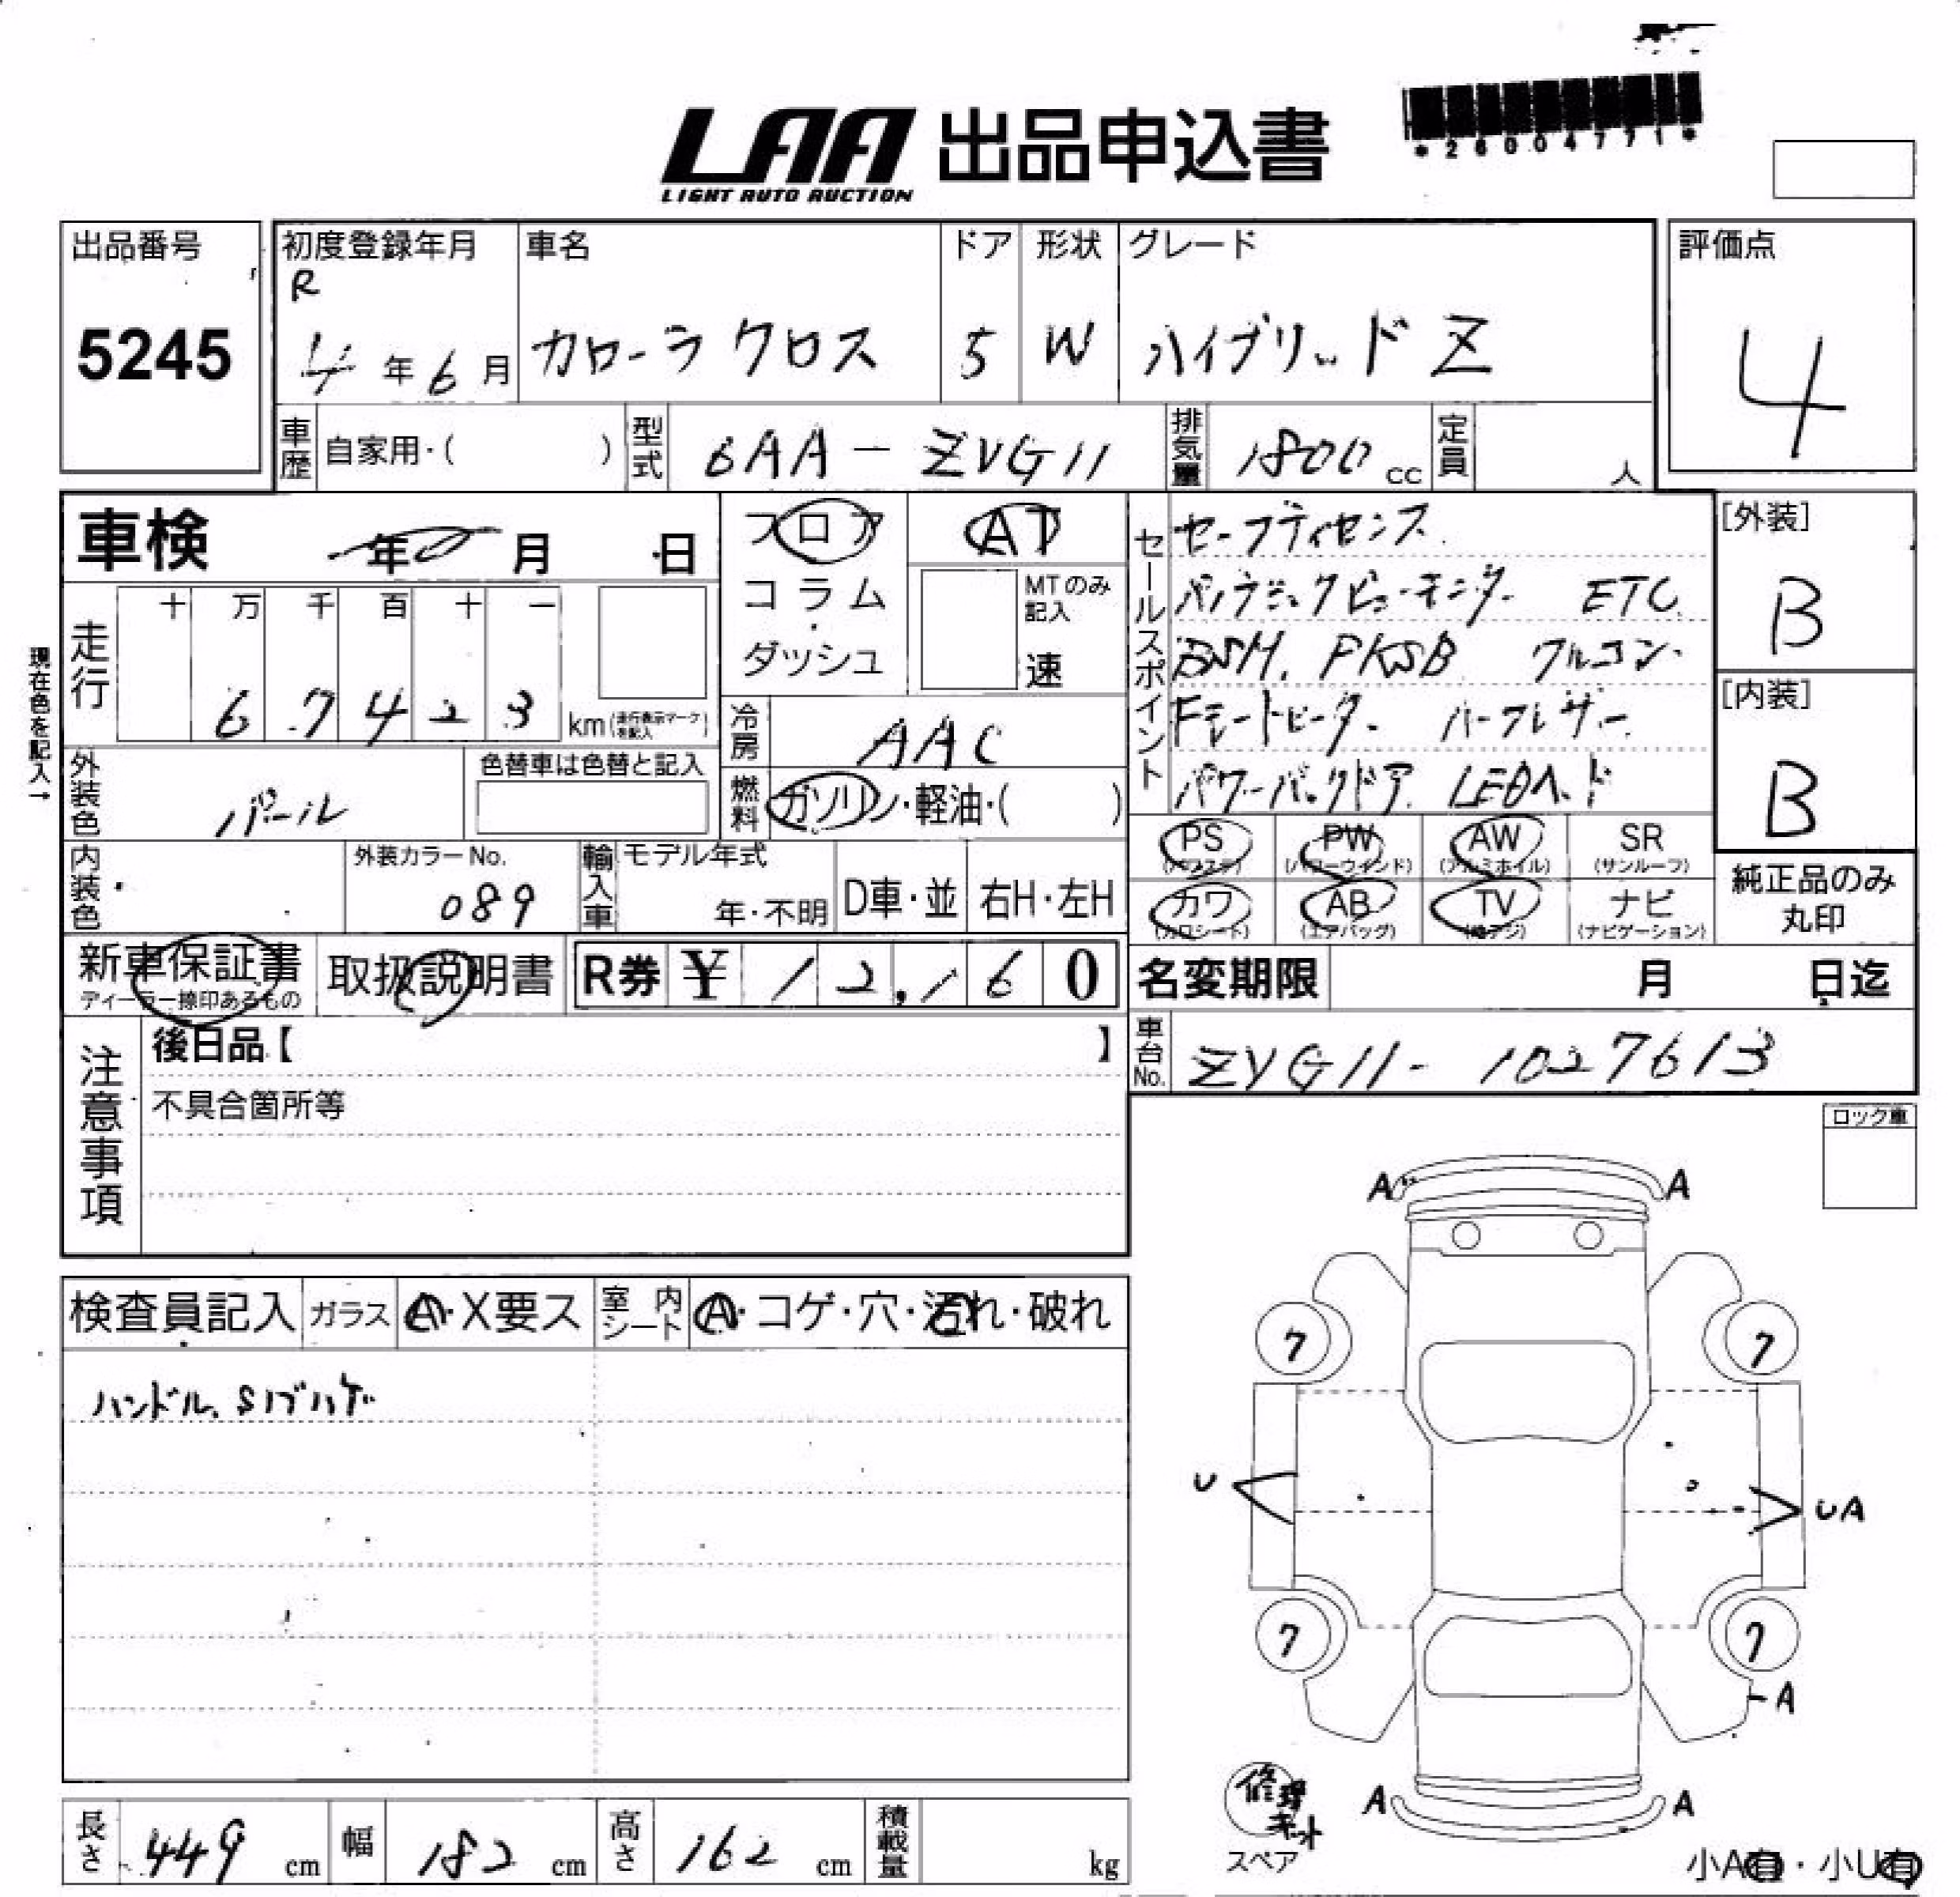 LAA 出品申込書
LIGHT AUTO AUCTION
*26004771*
出品番号
5245
初度登録年月
R
4年6月
車名
カローラ クロス
ドア
5
形状
W
グレード
ハイブリッド Z
評価点
4
車歴 自家用・( )
型式 6AA-ZVG11
排気量 1800 cc
定員 人
車検 年 月 日
現在色を記入→
走行
十 万 千 百 十 一
6 7 4 2 3
km (走行表示マークを記入)
フロア
コラム
ダッシュ
AT
MTのみ記入
速
冷房 AAC
燃料 ガソリン・軽油・( )
外装色 パール
色替車は色替と記入
内装色
外装カラーNo.
089
輸入車
モデル年式
年・不明
D車・並
右H・左H
セールスポイント
セーフティセンス
パノラミックビューモニター ETC
BSM. PKSB クルコン
Fシートヒーター ハーフレザー
パワーバックドア LEDヘッド
[外装]
B
[内装]
B
PS (パワステ)
PW (パワーウインド)
AW (アルミホイル)
SR (サンルーフ)
カワ (カワシート)
AB (エアバッグ)
TV (地デジ)
ナビ (ナビゲーション)
純正品のみ丸印
新車保証書
ディーラー捺印あるもの
取扱説明書
R券 ¥ 12,160
名変期限 月 日迄
車台No. ZVG11-1027613
注意事項
後日品【 】
不具合箇所等
ロック車
検査員記入
ガラス A・X要ス
室内シート A・コゲ・穴・汚れ・破れ
ハンドル、Sノブハゲ
A A
7 7
U UA
7 7
A
A A
修理キット
スペア
小A有・小U有
長さ 449 cm
幅 182 cm
高さ 162 cm
積載量 kg